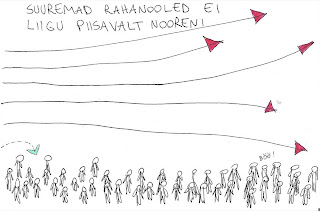 SUUREMAD RAHANOOLED EI
LIIGU PIISAVALT NOORENI